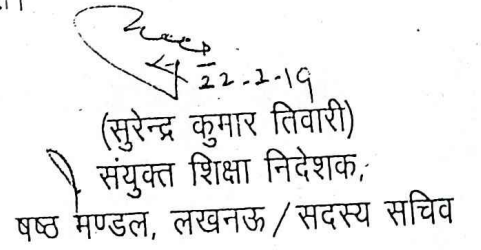 22-2-19
(सुरेन्द्र कुमार तिवारी)
संयुक्त शिक्षा निदेशक,
षष्ठ मण्डल, लखनऊ / सदस्य सचिव